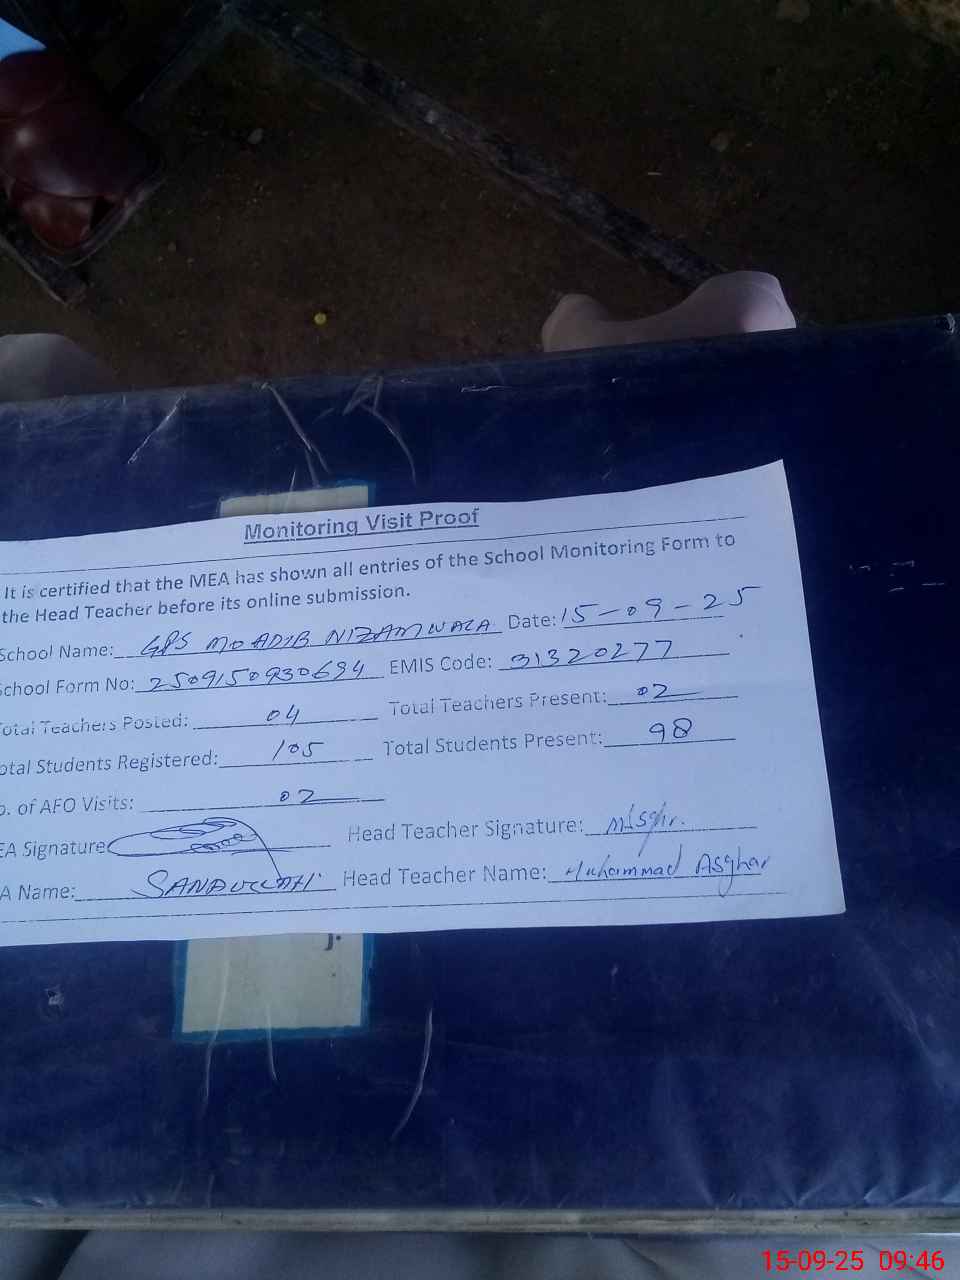 Monitoring Visit Proof
It is certified that the MEA has shown all entries of the School Monitoring Form to
the Head Teacher before its online submission.
School Name: GPS MOADIB NIZAMWALA Date: 15-09-25
School Form No: 2509150930694 EMIS Code: 31320277
Total Teachers Posted: 04 Total Teachers Present: 02
otal Students Registered: 105 Total Students Present: 98
o. of AFO Visits: 02
EA Signature Head Teacher Signature: MAsghr.
A Name: SANAULLAH Head Teacher Name: Muhammad Asghar
15-09-25 09:46